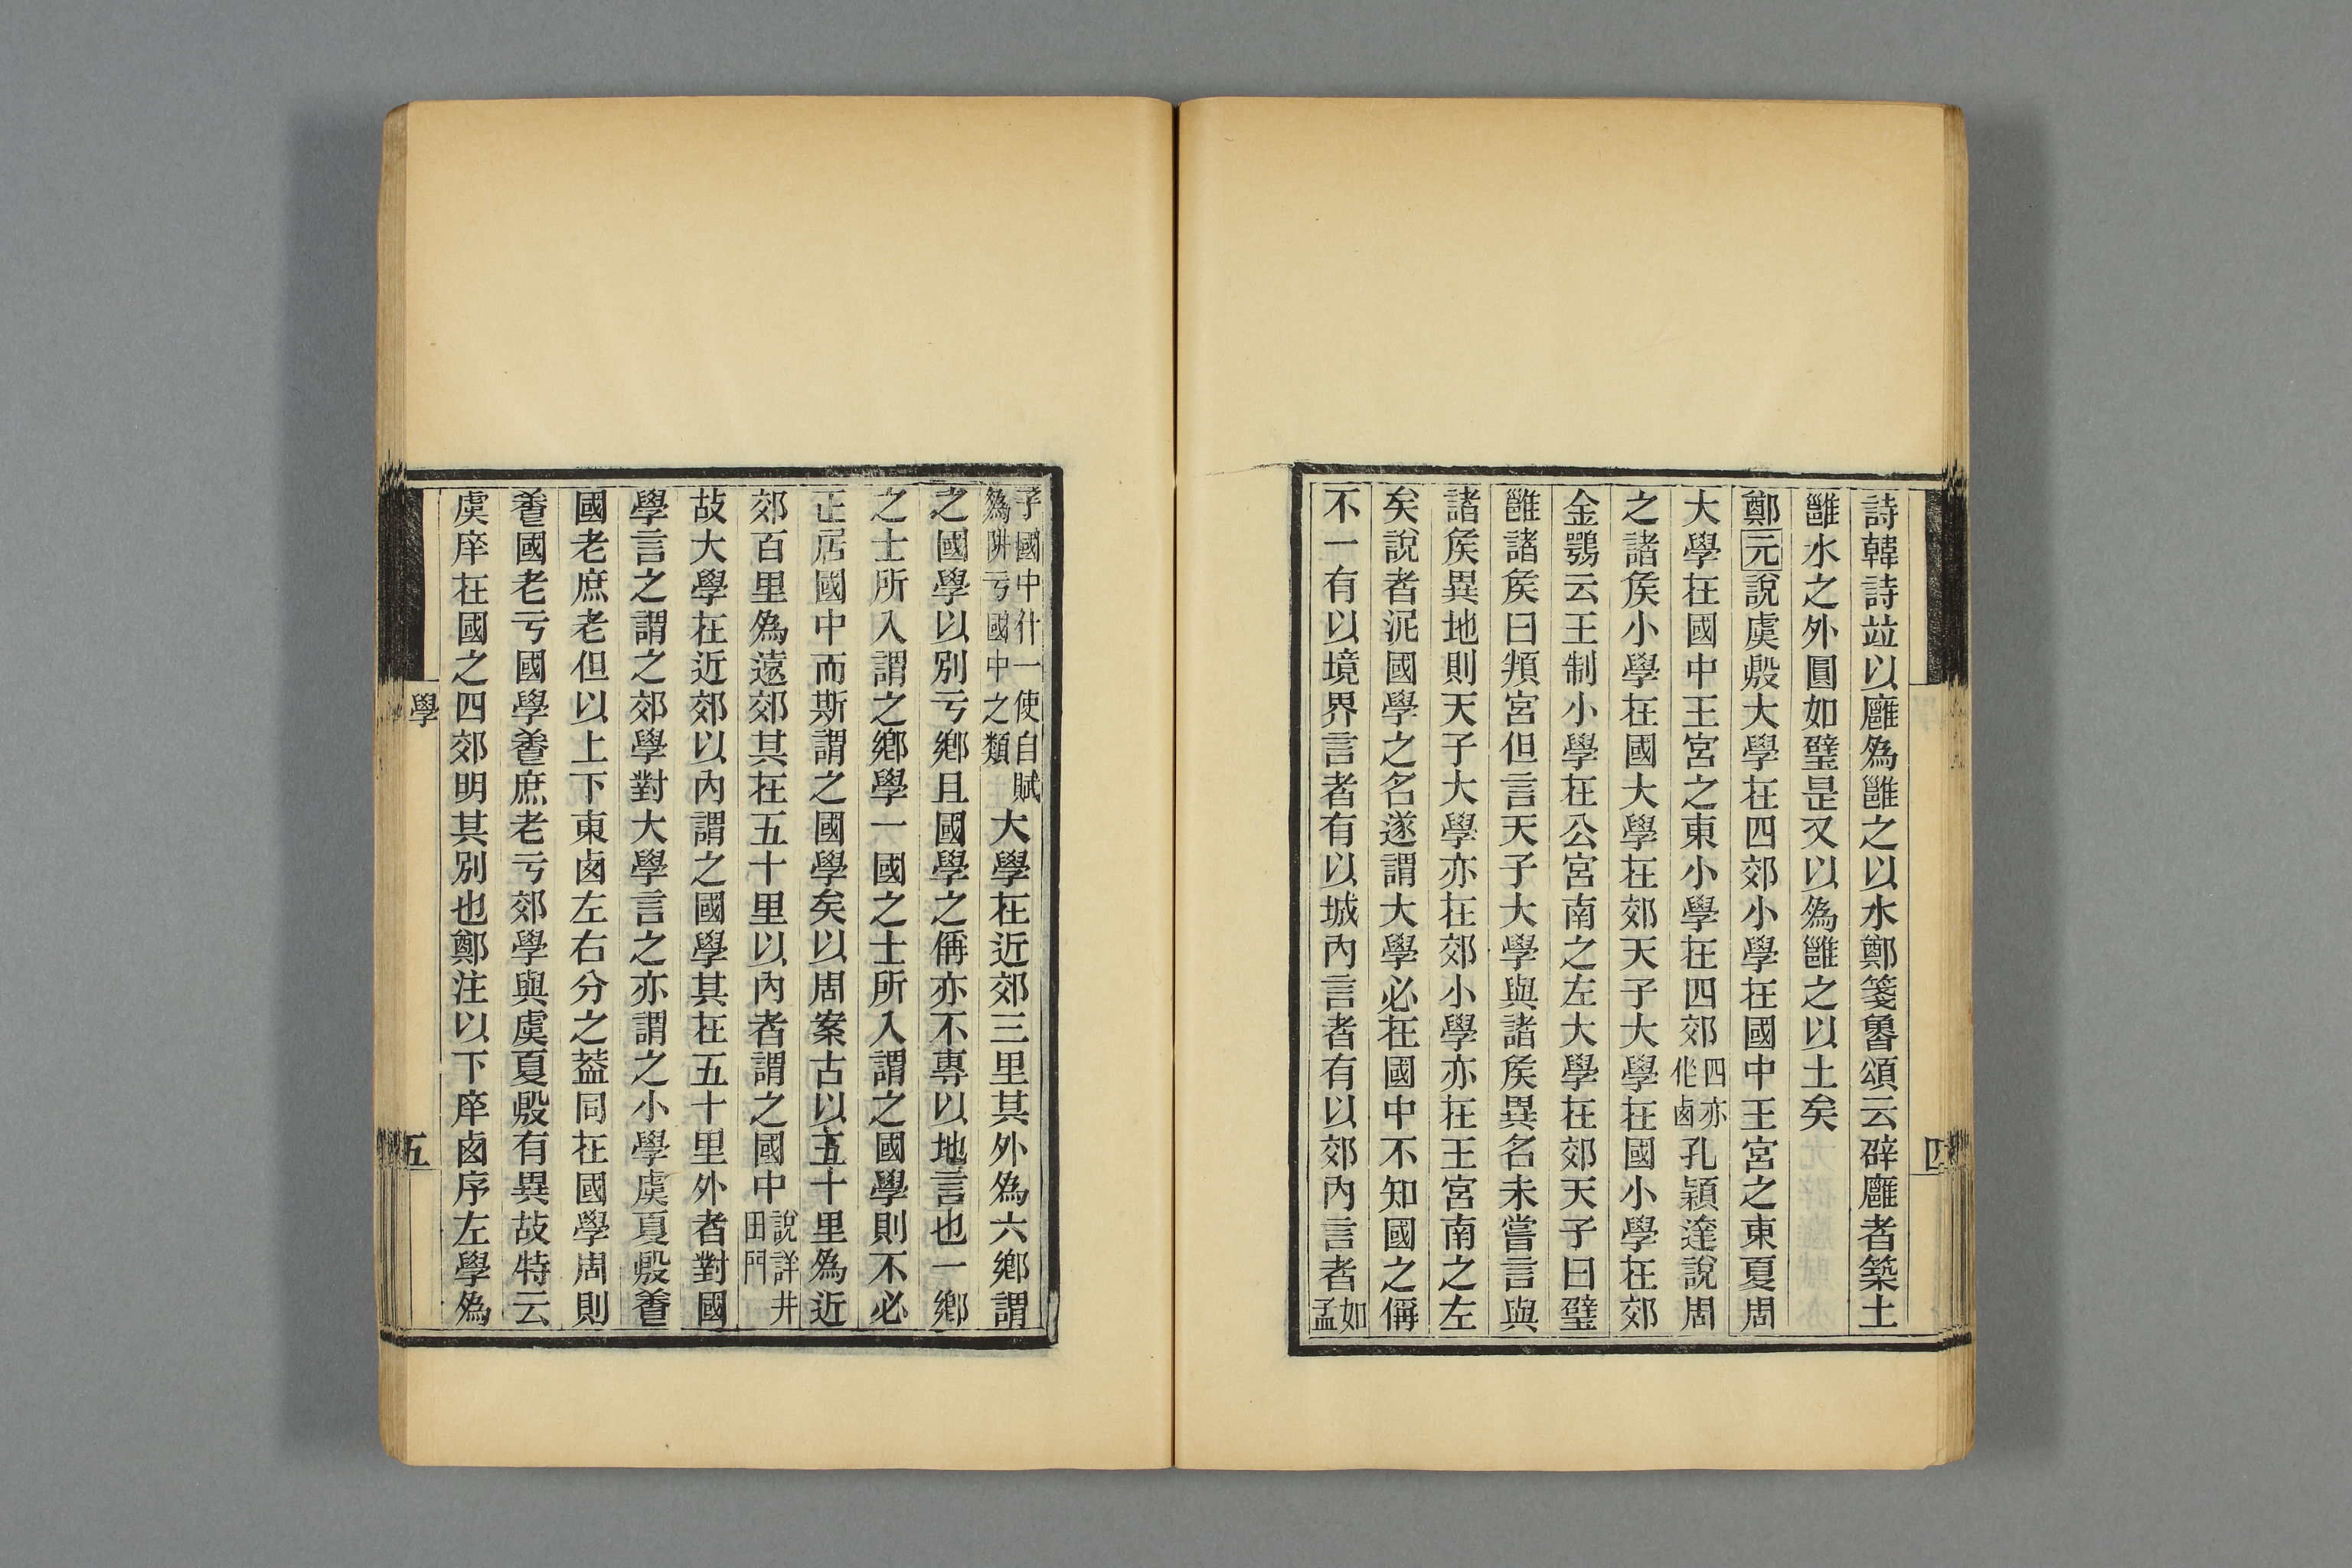 詩韓詩竝以廱為雝之以水鄭箋魯頌云辟廱者築土
雝水之外圓如璧是又以為雝之以土矣
鄭元說虞殷大學在四郊小學在國中王宮之東夏周
大學在國中王宮之東小學在四郊四亦作西孔穎達說周
之諸矦小學在國大學在郊天子大學在國小學在郊
金鶚云王制小學在公宮南之左大學在郊天子曰璧
雝諸矦曰頖宮但言天子大學與諸矦異名未嘗言與
諸矦異地則天子大學亦在郊小學亦在王宮南之左
矣說者泥國學之名遂謂大學必在國中不知國之偁
不一有以境界言者有以城內言者有以郊內言者如孟
四
子國中什一使自賦為阱亏國中之類大學在近郊三里其外為六鄉謂
之國學以別亏鄉且國學之偁亦不專以地言也一鄉
之士所入謂之鄉學一國之士所入謂之國學則不必
正居國中而斯謂之國學矣以周案古以五十里為近
郊百里為遠郊其在五十里以內者謂之國中說詳井田門
故大學在近郊以內謂之國學其在五十里外者對國
學言之謂之郊學對大學言之亦謂之小學虞夏殷養
國老庶老但以上下東西左右分之葢同在國學周則
養國老亏國學養庶老亏郊學與虞夏殷有異故特云
虞庠在國之四郊明其別也鄭注以下庠西序左學為
學
五